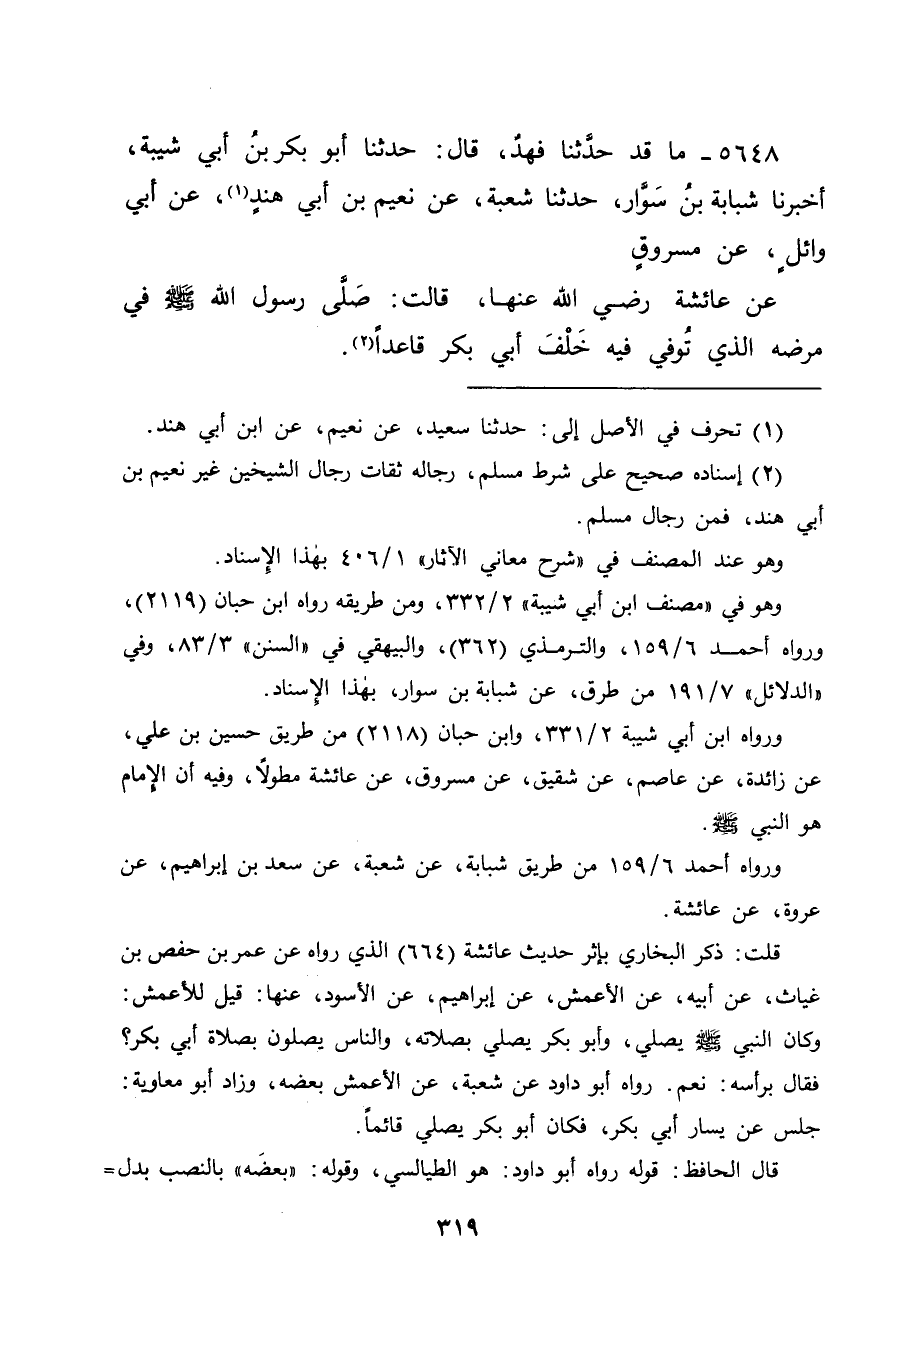 ٥٦٤٨ ـ ما قد حدَّثنا فهدٌ، قال: حدثنا أبو بكر بنُ أبي شيبة،
أخبرنا شبابة بنُ سَوَّار، حدثنا شعبة، عن نعيم بن أبي هندٍ(١)، عن أبي
وائلٍ، عن مسروقٍ
عن عائشة رضي الله عنها، قالت: صَلَّى رسول الله ﷺ في
مرضه الذي تُوفي فيه خَلْفَ أبي بكر قاعداً(٢).
(١) تحرف في الأصل إلى: حدثنا سعيد، عن نعيم، عن ابن أبي هند.
(٢) إسناده صحيح على شرط مسلم، رجاله ثقات رجال الشيخين غير نعيم بن
أبي هند، فمن رجال مسلم.
وهو عند المصنف في «شرح معاني الآثار» ٤٠٦/١ بهٰذا الإسناد.
وهو في «مصنف ابن أبي شيبة» ٣٣٢/٢، ومن طريقه رواه ابن حبان (٢١١٩)،
ورواه أحمد ١٥٩/٦، والترمذي (٣٦٢)، والبيهقي في «السنن» ٨٣/٣، وفي
«الدلائل» ١٩١/٧ من طرق، عن شبابة بن سوار، بهٰذا الإسناد.
ورواه ابن أبي شيبة ٣٣١/٢، وابن حبان (٢١١٨) من طريق حسين بن علي،
عن زائدة، عن عاصم، عن شقيق، عن مسروق، عن عائشة مطولًا، وفيه أن الإمام
هو النبي ﷺ.
ورواه أحمد ١٥٩/٦ من طريق شبابة، عن شعبة، عن سعد بن إبراهيم، عن
عروة، عن عائشة.
قلت: ذكر البخاري بإثر حديث عائشة (٦٦٤) الذي رواه عن عمر بن حفص بن
غياث، عن أبيه، عن الأعمش، عن إبراهيم، عن الأسود، عنها: قيل للأعمش:
وكان النبي ﷺ يصلي، وأبو بكر يصلي بصلاته، والناس يصلون بصلاة أبي بكر؟
فقال برأسه: نعم. رواه أبو داود عن شعبة، عن الأعمش بعضه، وزاد أبو معاوية:
جلس عن يسار أبي بكر، فكان أبو بكر يصلي قائماً.
قال الحافظ: قوله رواه أبو داود: هو الطيالسي، وقوله: «بعضَه» بالنصب بدل=
٣١٩